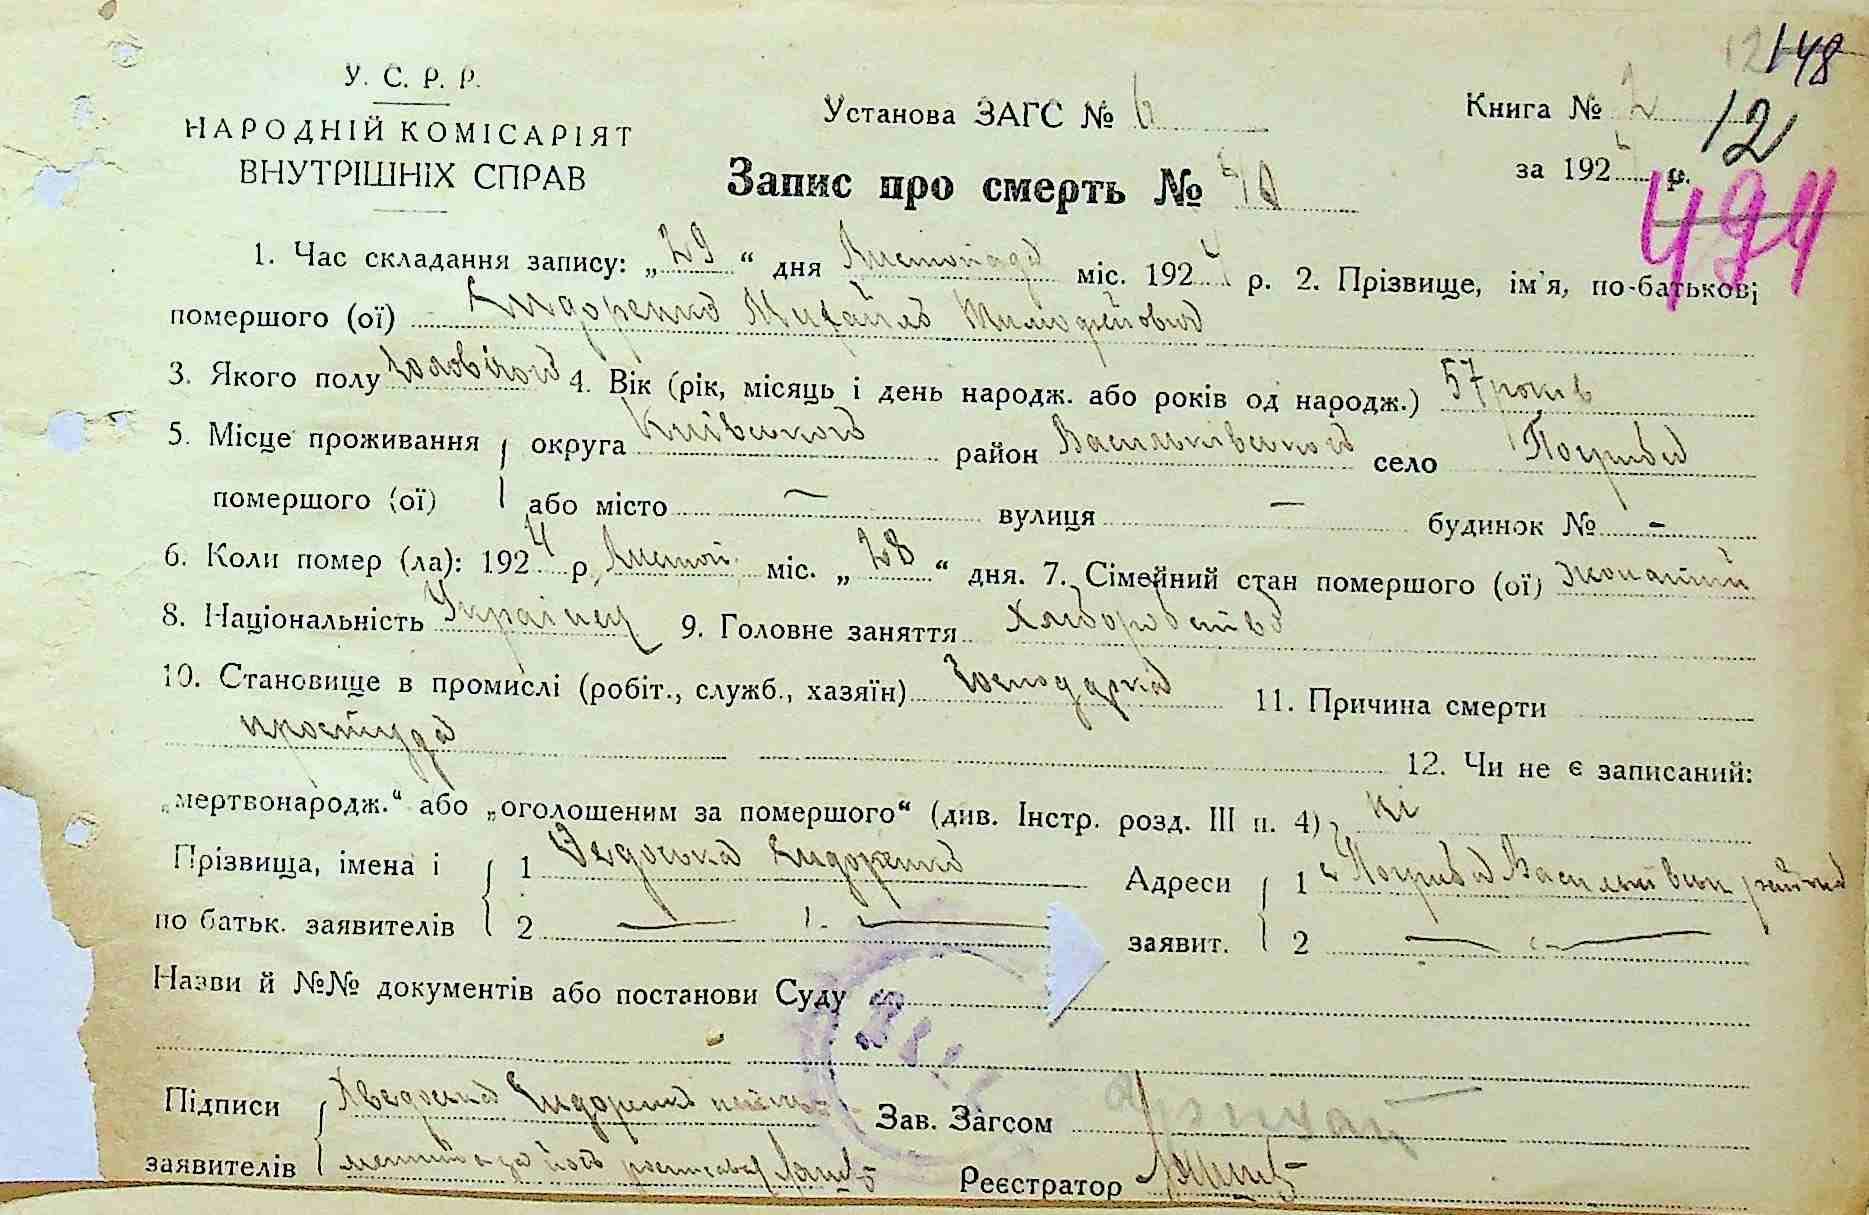 148
12
У. С. Р. Р.
НАРОДНІЙ КОМІСАРІЯТ
ВНУТРІШНІХ СПРАВ
Установа ЗАГС № 6
Книга № 2
за 1924 р.
494
Запис про смерть № 40
1. Час складання запису: „29“ дня Листопада міс. 1924 р. 2. Прізвище, ім'я, по-батькові
помершого (ої) Сидоренко Михайло Тимофейович
3. Якого полу Чоловічого 4. Вік (рік, місяць і день народж. або років од народж.) 57 років
5. Місце проживання округа Київського район Васильківського село Погреби
помершого (ої) або місто — вулиця — будинок № -
6. Коли помер (ла): 1924 р. Листоп. міс. „28“ дня. 7. Сімейний стан помершого (ої) жонатий
8. Національність Українец 9. Головне заняття Хліборобство
10. Становище в промислі (робіт., служб., хазяїн) 11. Причина смерти
простуда
12. Чи не є записаний:
„мертвонародж.“ або „оголошеним за помершого“ (див. Інстр. розд. III п. 4) ні
Прізвища, імена і 1 Федоська Сидоренко Адреси 1 с Погреби Васильківськ района
по батьк. заявителів 2 — заявит. 2 —
Назви й №№ документів або постанови Суду
Підписи Хведоська Сидоренко Зав. Загсом
заявителів Реєстратор